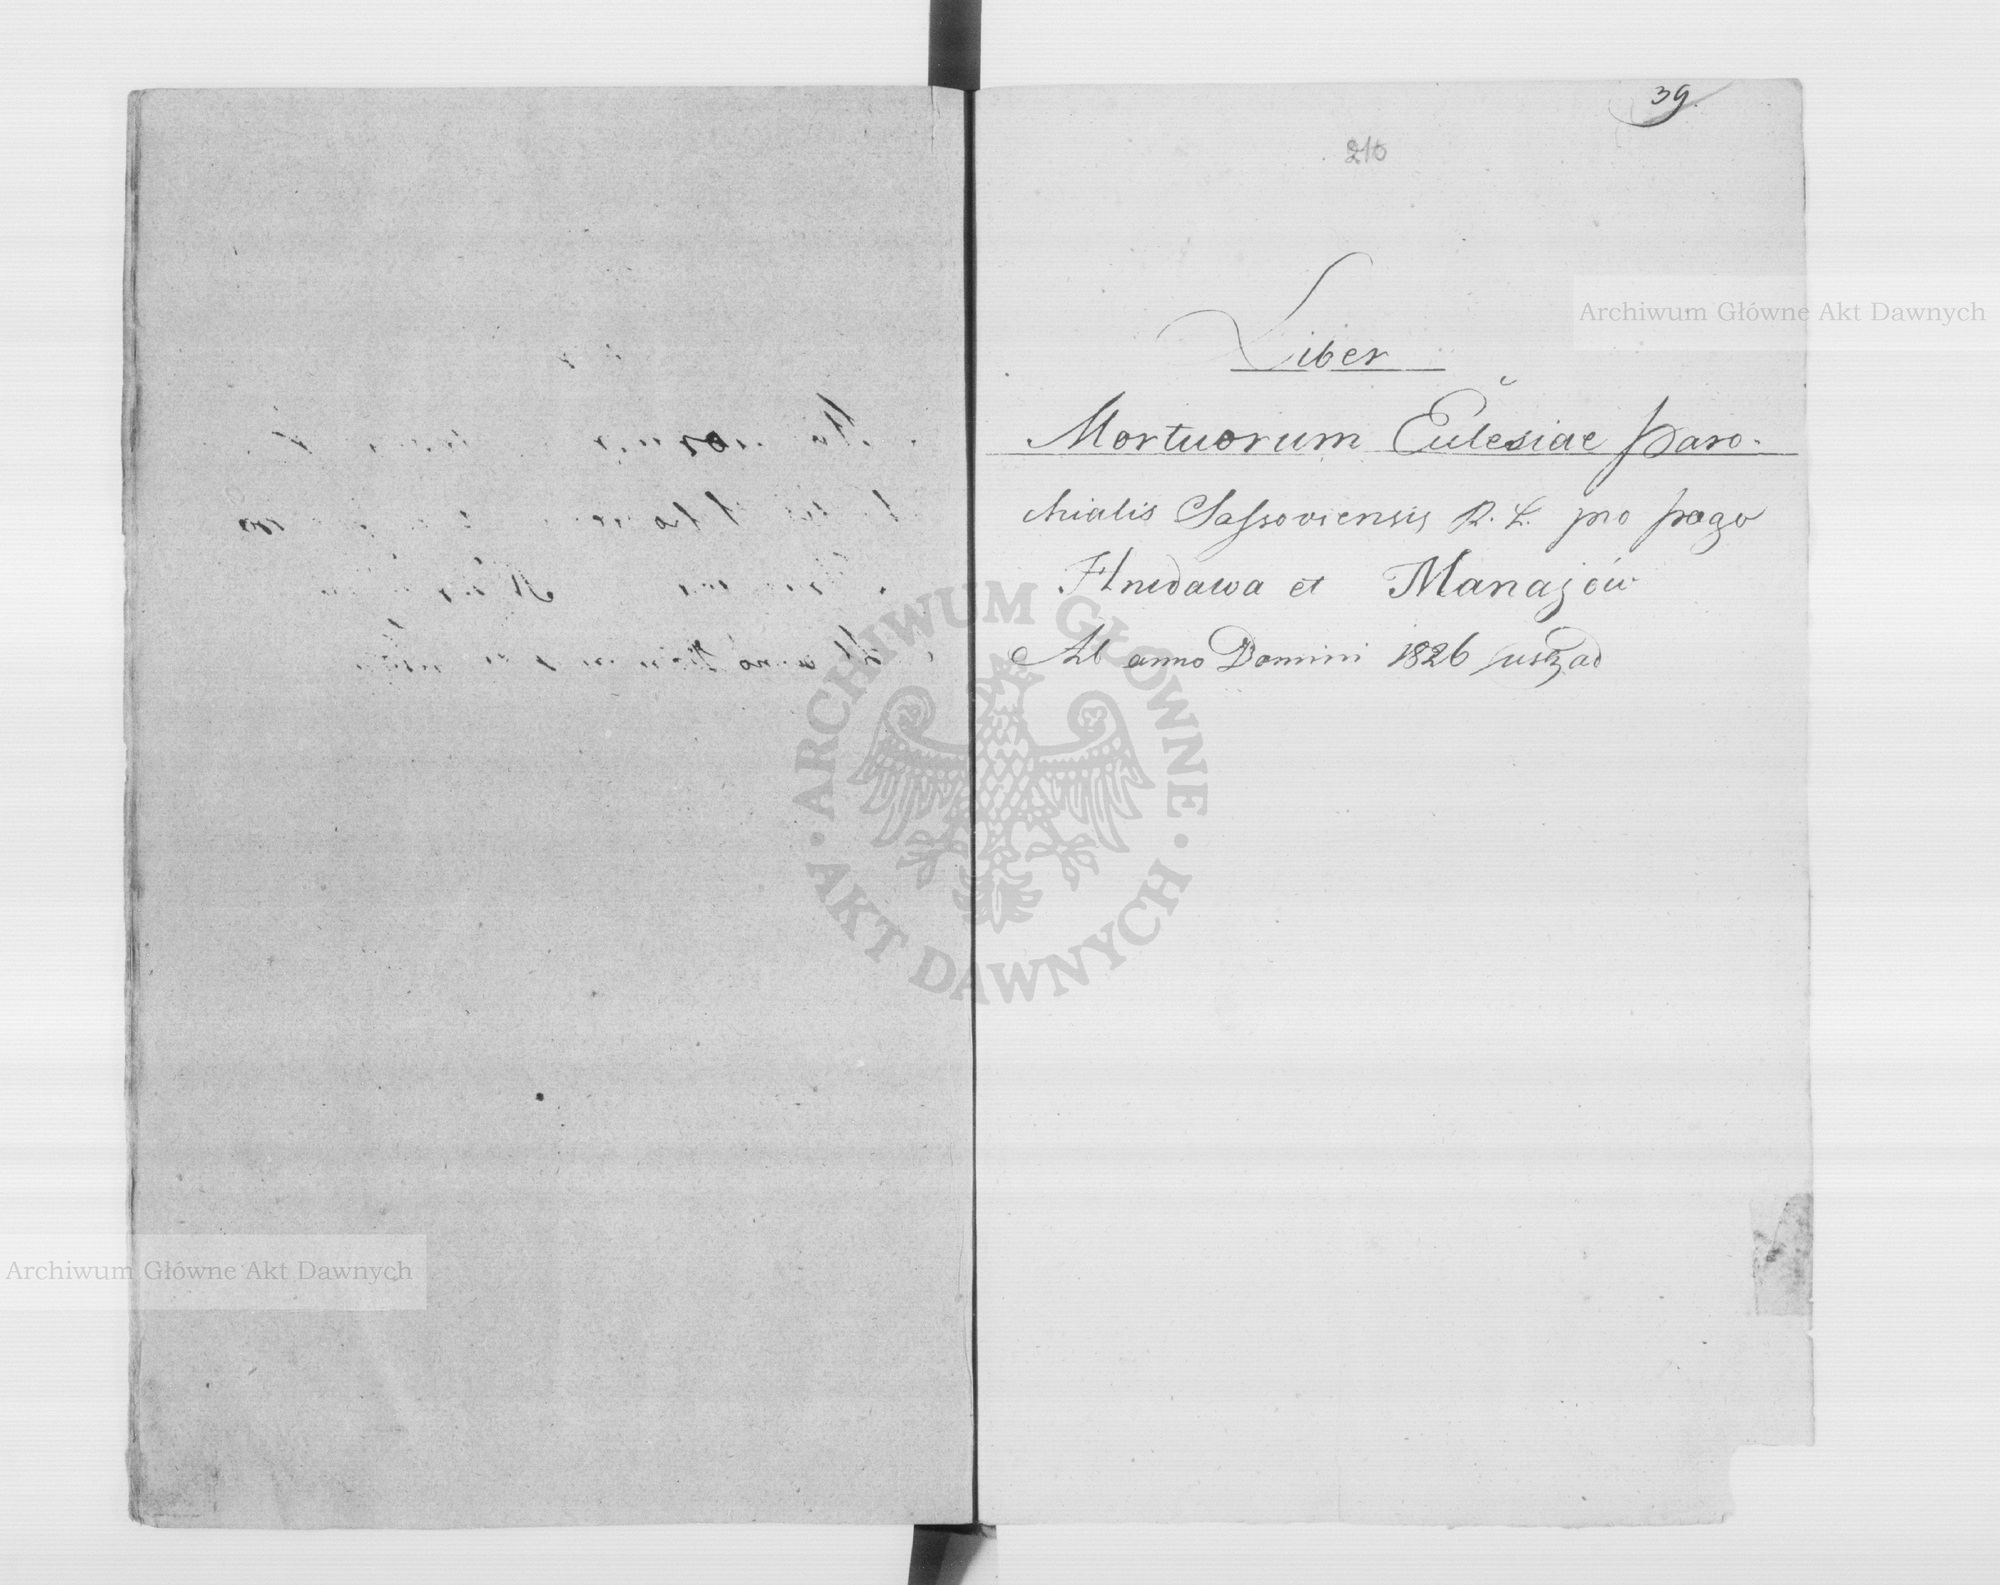 39.
210
Liber
Mortuorum Eulesiae Paro-
chialis Sassoviensis R. L. pro pago
Hnidawa et Manajów
Ab anno Domini 1826 usq ad
Archiwum Główne Akt Dawnych
ARCHIWUM GŁÓWNE
AKT DAWNYCH
Archiwum Główne Akt Dawnych